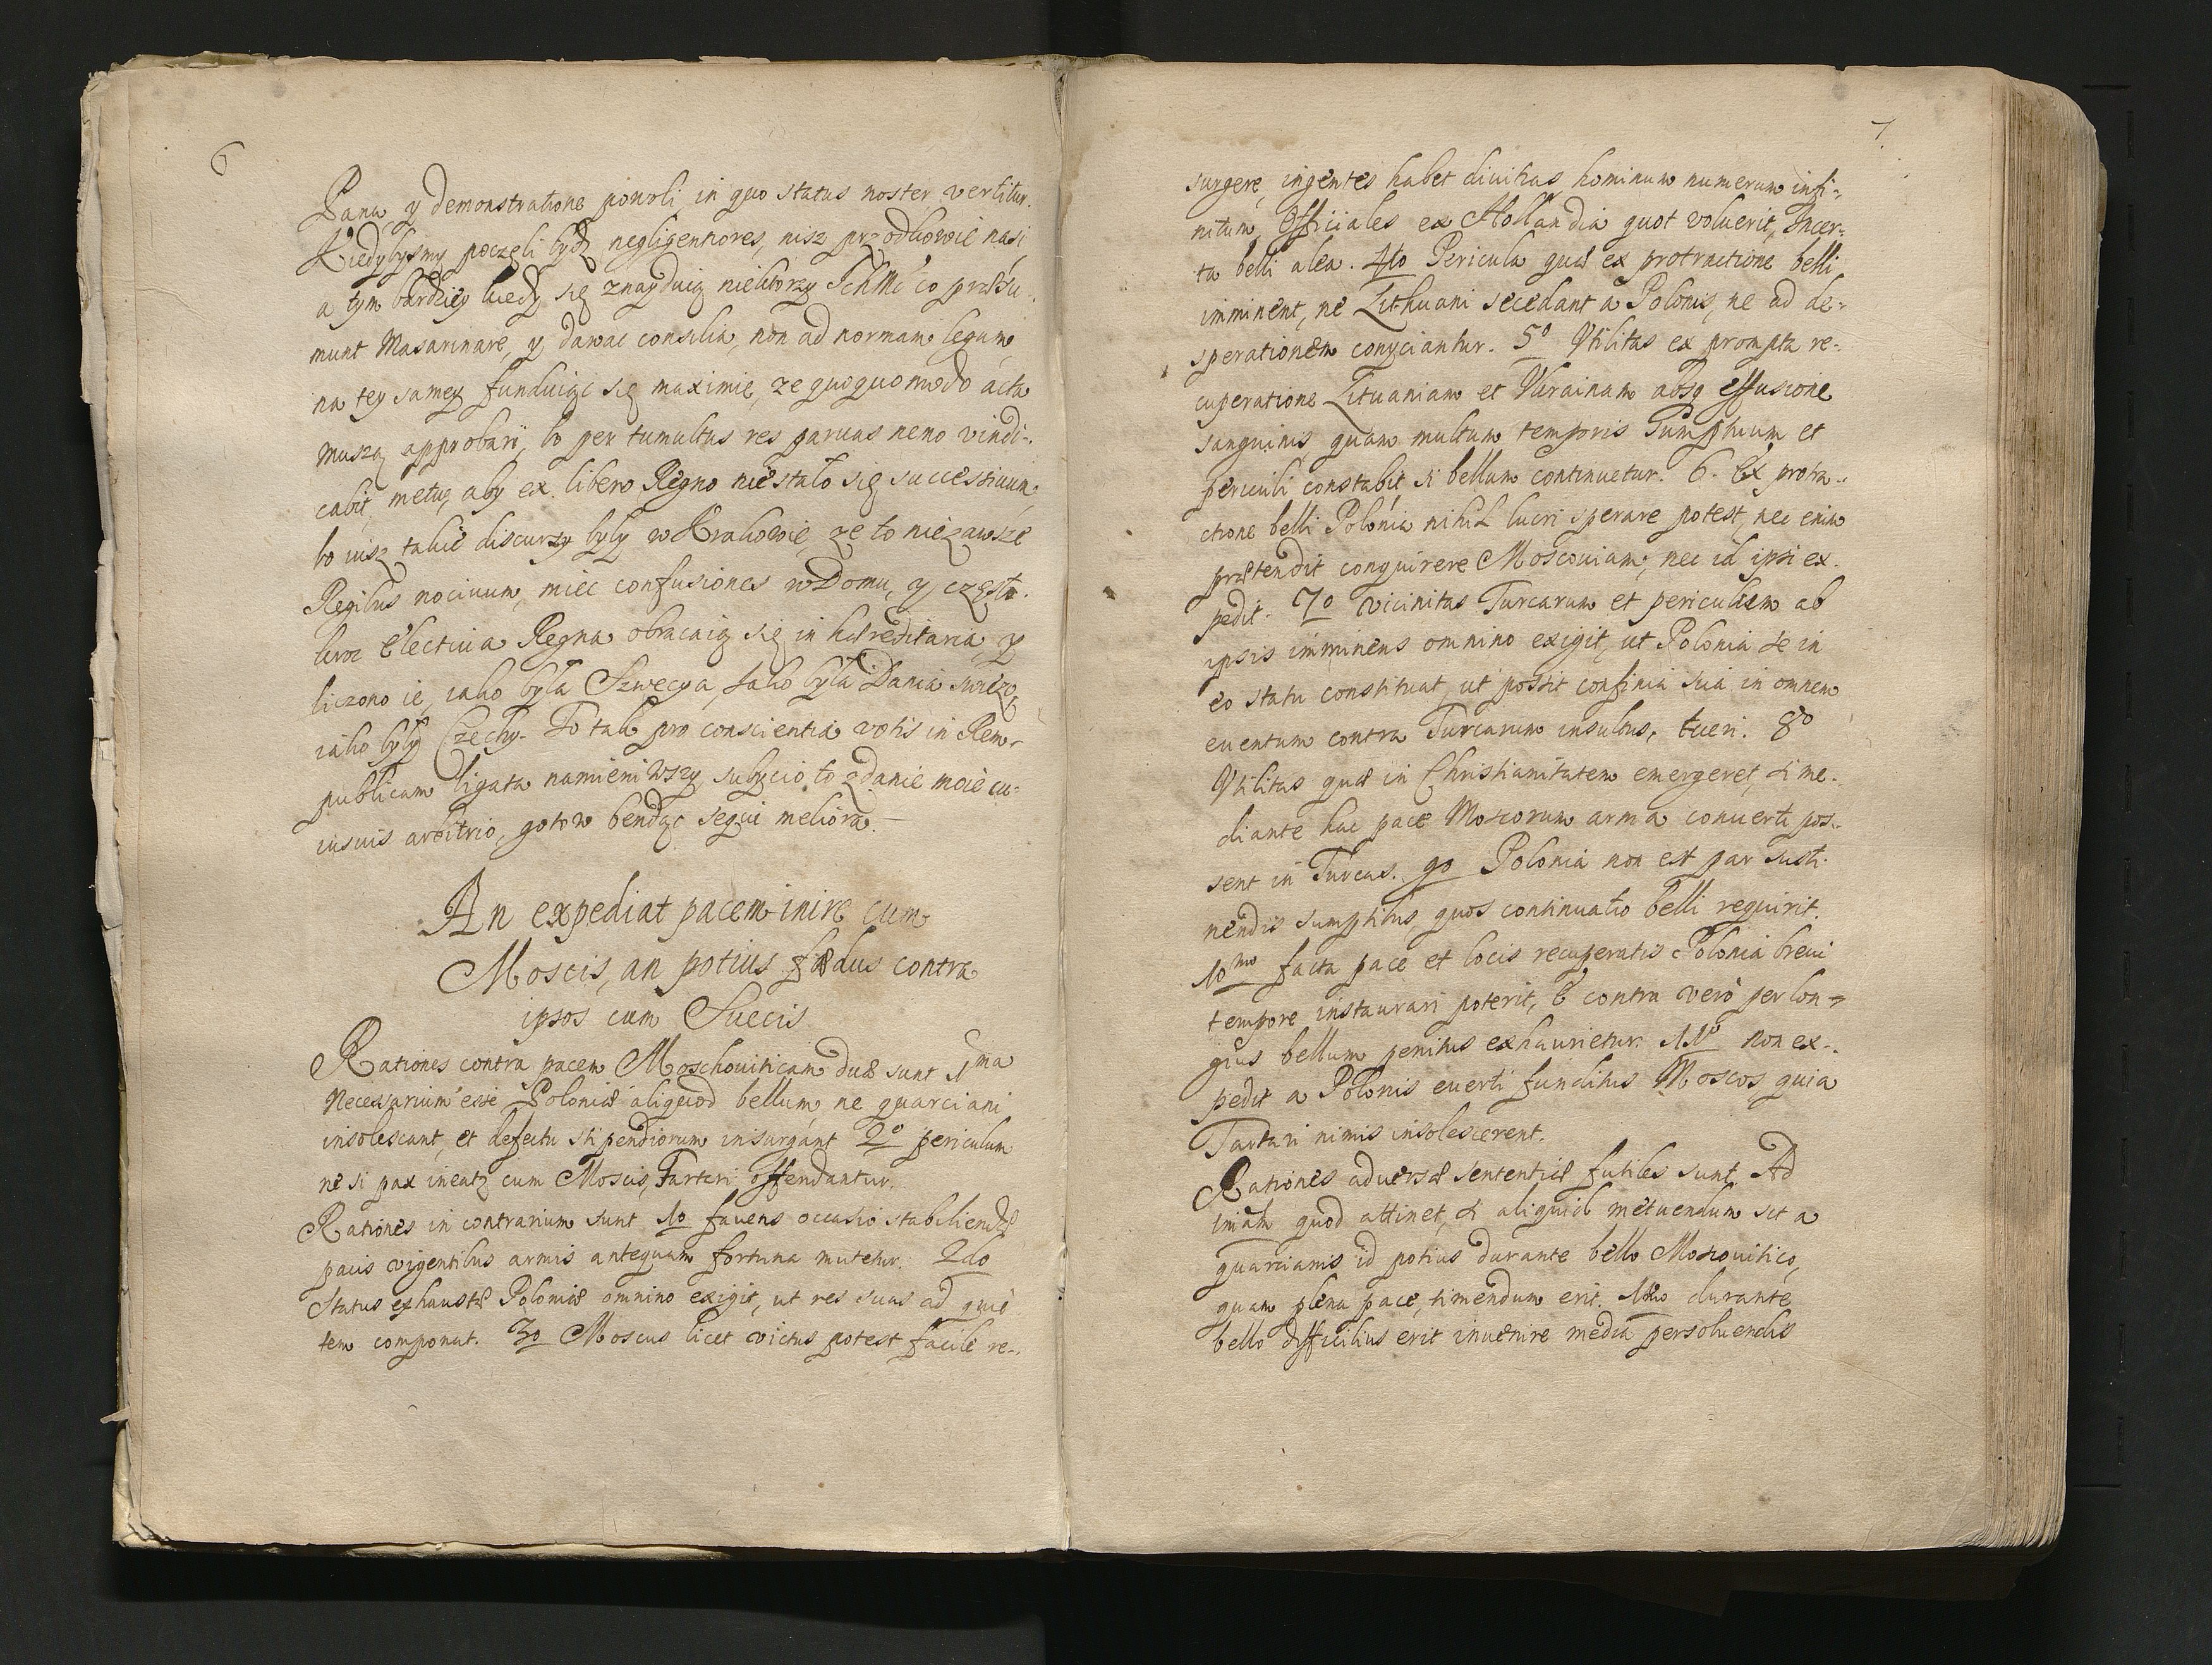 6
Pana, y demonstratione powoli in quo status noster vertitur.
Kiedybysmy poczęli bydz negligentiores, nisz przodkowie nasi,
a tym bardziey kiedy się znayduią niektorzy IchMć co præsu-
munt Masarinare, y dawac consilia, non ad normam legum,
na tey samey funduiąc się maximie, ze quoquomodo acta
muszą approbari, bo per tumultus res paruas nemo vindi-
cabit, metuę aby ex libero Regno niestało się successiuum,
bo iusz takie discursy były w Krakowie, ze to niezawsze
Regibus nociuum, miec confusiones w Domu, y często-
kroc Electiua Regna obracaią się in hæreditaria, y
liczono ie, iako była Szwecya, Iako była Dania swiezo,
iako były Czechy. To tak pro conscientia votis in Rem-
publicam ligata namieniwszy, subycio to zdanie moie cu-
iusuis arbitrio, gotow bendąc sequi meliora.
An expediat pacem inire cum
Moscis, an potius fædus contra
ipsos cum Suecis
Rationes contra pacem Moschouiticam duæ sunt 1ma
Necessarium esse Poloniæ aliquod bellum, ne quarciani
insolescant, et defectu stipendiorum insurgant 2o periculum
ne si pax ineatq cum Moscis, Tartari offendantur.
Rationes in contrarium sunt, 1o fauens occasio stabiliendæ
pacis vigentibus armis antequam fortuna mutetur. 2do
Status exhaustæ Poloniæ omnino exigit, ut res suas ad quie
tem componat. 3o Moscus licet victus potest facile re-
7.
surgere, ingentes habet diuitias, hominum numerum infi-
nitum, Officiales ex Hollandia quot voluerit, Incer-
ta belli alea. 4to Pericula quæ ex protractione belli
imminent, ne Lithuani secedant a Polonis, ne ad de-
sperationem conyciantur. 5o Vtilitas ex prompta re-
cuperatione Lituaniam et Vkrainam absq effusione
sanguinis, quam multum temporis Sumptuum et
periculi constabit si bellum continuetur. 6. Ex protra-
ctione belli Polonia nihil lucri sperare potest, nec enim
prætendit conquirere Moscouiam, nec id ipsi ex-
pedit. 7o vicinitas Turcarum et periculum ab
ipsis imminens omnino exigit, ut Polonia se in
eo statu constituat, ut possit confinia sua in omnem
euentum contra Turcarum insultus, tueri. 8o
Vtilitas quæ in Christianitatem emergeret, si me-
diante hac pace Moscorum arma conuerti pos-
sent in Turcas. 9o Polonia non est par susti-
nendis sumptibus, quos continuatio belli requirit.
10mo facta pace et locis recuperatis Polonia breui
tempore instaurari poterit, E contra vero per lon-
gius bellum penitus exhaurietur. 11o Non ex-
pedit a Polonis euerti funditus Moscos quia
Tartari nimis insolescerent.
Rationes aduersæ sententiæ futiles sunt. Ad
imam quod attinet, si aliquid metuendum sit a
quarcianis id potius durante bello Moscouitico,
quam plena pace, timendum erit. 1mo durante
bello difficilius erit inuenire media persoluendis